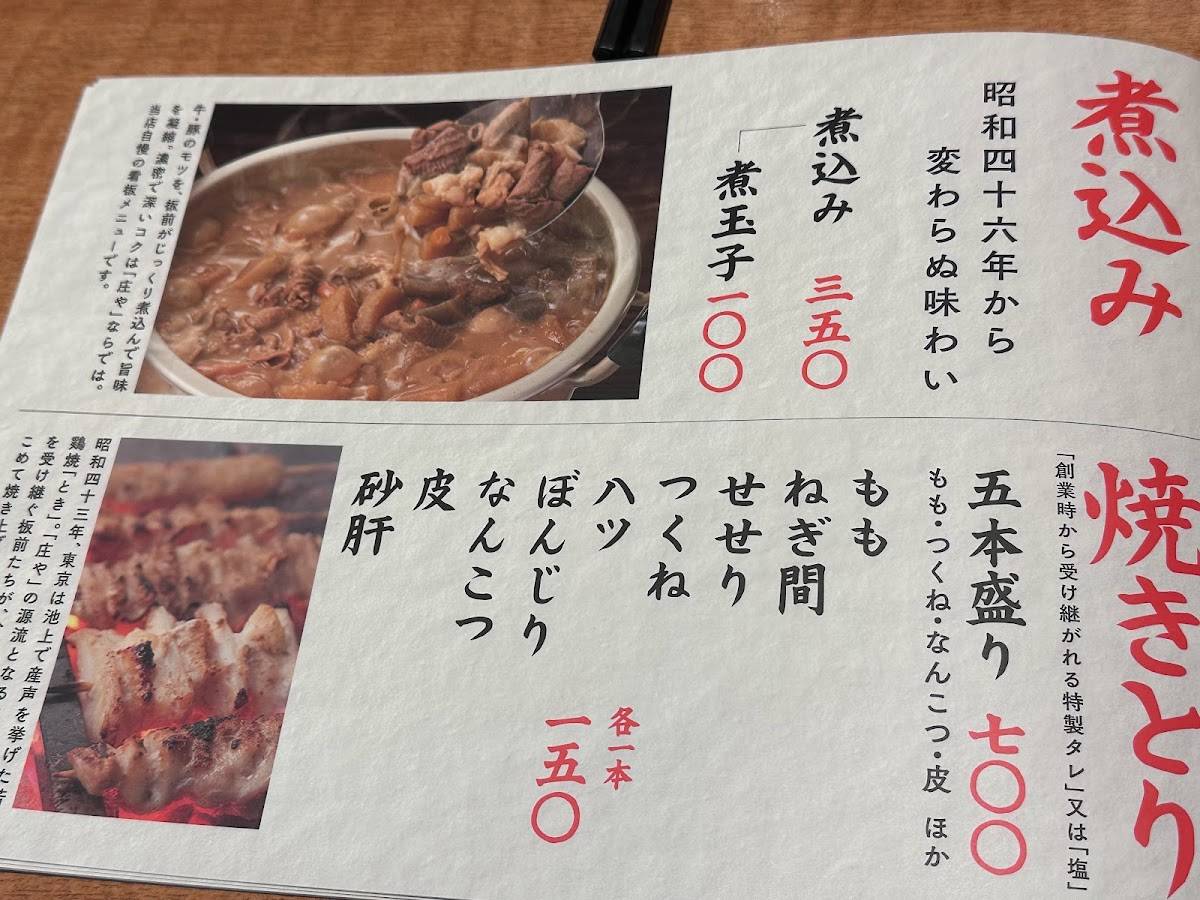 煮込み
昭和四十六年から
変わらぬ味わい
煮込み 三五〇
煮玉子 一〇〇
牛・豚のモツを、板前がじっくり煮込んで旨味
を凝縮。濃密で深いコクは「庄や」ならでは。
当店自慢の看板メニューです。
焼きとり
「創業時から受け継がれる特製タレ」又は「塩」
五本盛り 七〇〇
もも・つくね・なんこつ・皮 ほか
もも
ねぎ間
せせり
つくね
ハツ
ぼんじり
なんこつ
皮
砂肝
各一本
一五〇
昭和四十三年、東京は池上で産声を挙げた
鶏焼「とき」。「庄や」の源流となる
を受け継ぐ板前たちが、
こめて焼き上